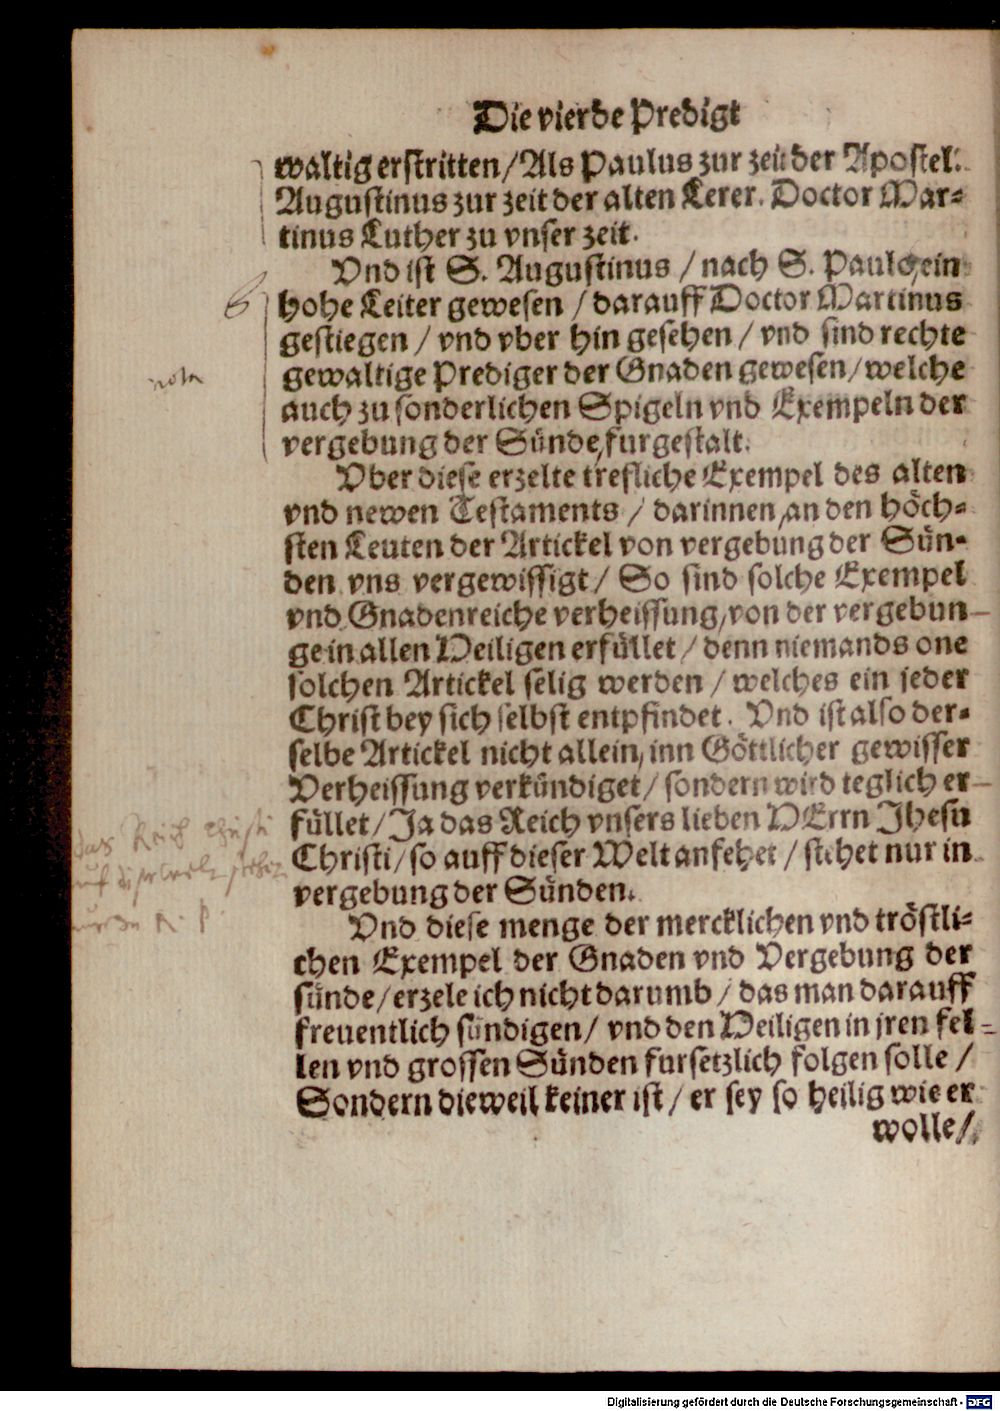 Die vierde Predigt
waltig erstritten / Als Paulus zur zeit der Apostel.
Augustinus zur zeit der alten Lerer. Doctor Mar-
tinus Luther zu vnser zeit.
Vnd ist S. Augustinus / nach S. Paulo, ein
hohe Leiter gewesen / darauff Doctor Martinus
gestiegen / vnd vber hin gesehen / vnd sind rechte
nota
gewaltige Prediger der Gnaden gewesen / welche
auch zu sonderlichen Spigeln vnd Exempeln der
vergebung der Sünde, furgestalt.
Vber diese erzelte trefliche Exempel des alten
vnd newen Testaments / darinnen, an den höch-
sten Leuten der Artickel von vergebung der Sün-
den vns vergewissigt / So sind solche Exempel
vnd Gnadenreiche verheissung, von der vergebun-
ge in allen Heiligen erfüllet / denn niemands one
solchen Artickel selig werden / welches ein jeder
Christ bey sich selbst entpfindet. Vnd ist also der-
selbe Artickel nicht allein, inn Göttlicher gewisser
Verheissung verkündiget / sondern wird teglich er-
füllet / Ja das Reich vnsers lieben HErrn Jhesu
das Reich Christi
Christi / so auff dieser Welt anfehet / stehet nur in
auf dieser welt stehet
vergebung der Sünden.
nur in
Vnd diese menge der mercklichen vnd tröstli-
chen Exempel der Gnaden vnd Vergebung der
sünde / erzele ich nicht darumb / das man darauff
freuentlich sündigen / vnd den Heiligen in jren fel-
len vnd grossen Sünden fursetzlich folgen solle /
Sondern dieweil keiner ist / er sey so heilig wie er
wolle /
Digitalisierung gefördert durch die Deutsche Forschungsgemeinschaft - DFG